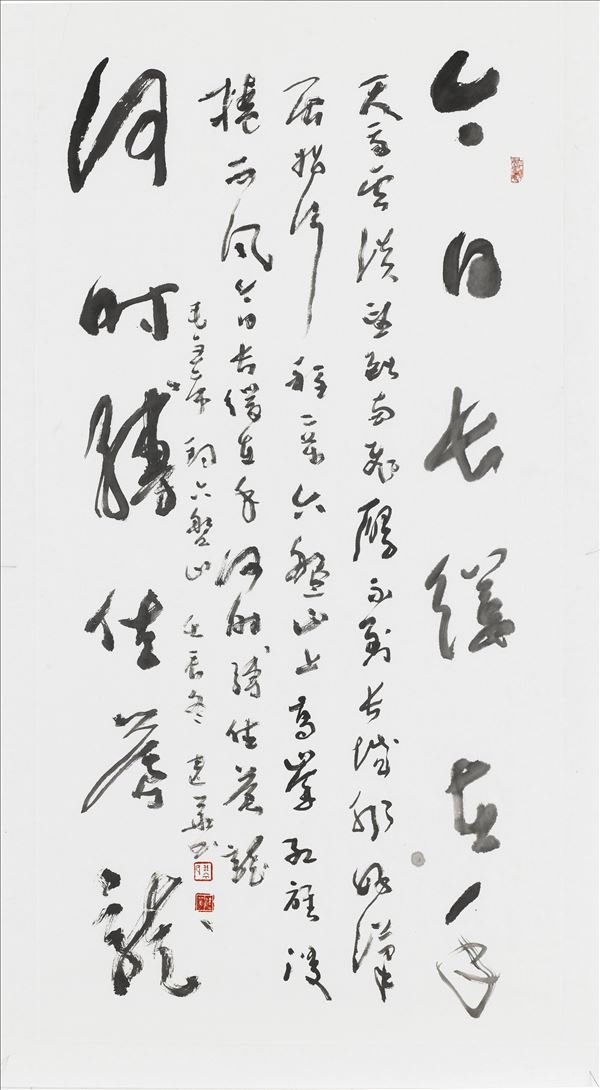 今日长缨在手
天高云淡望断南飞雁不到长城非好汉
屈指行程二万六盘山上高峰红旗漫
捲西风今日长缨在手何时缚住苍龙
毛主席词六盘山 壬辰冬 建华书
何时缚住苍龙